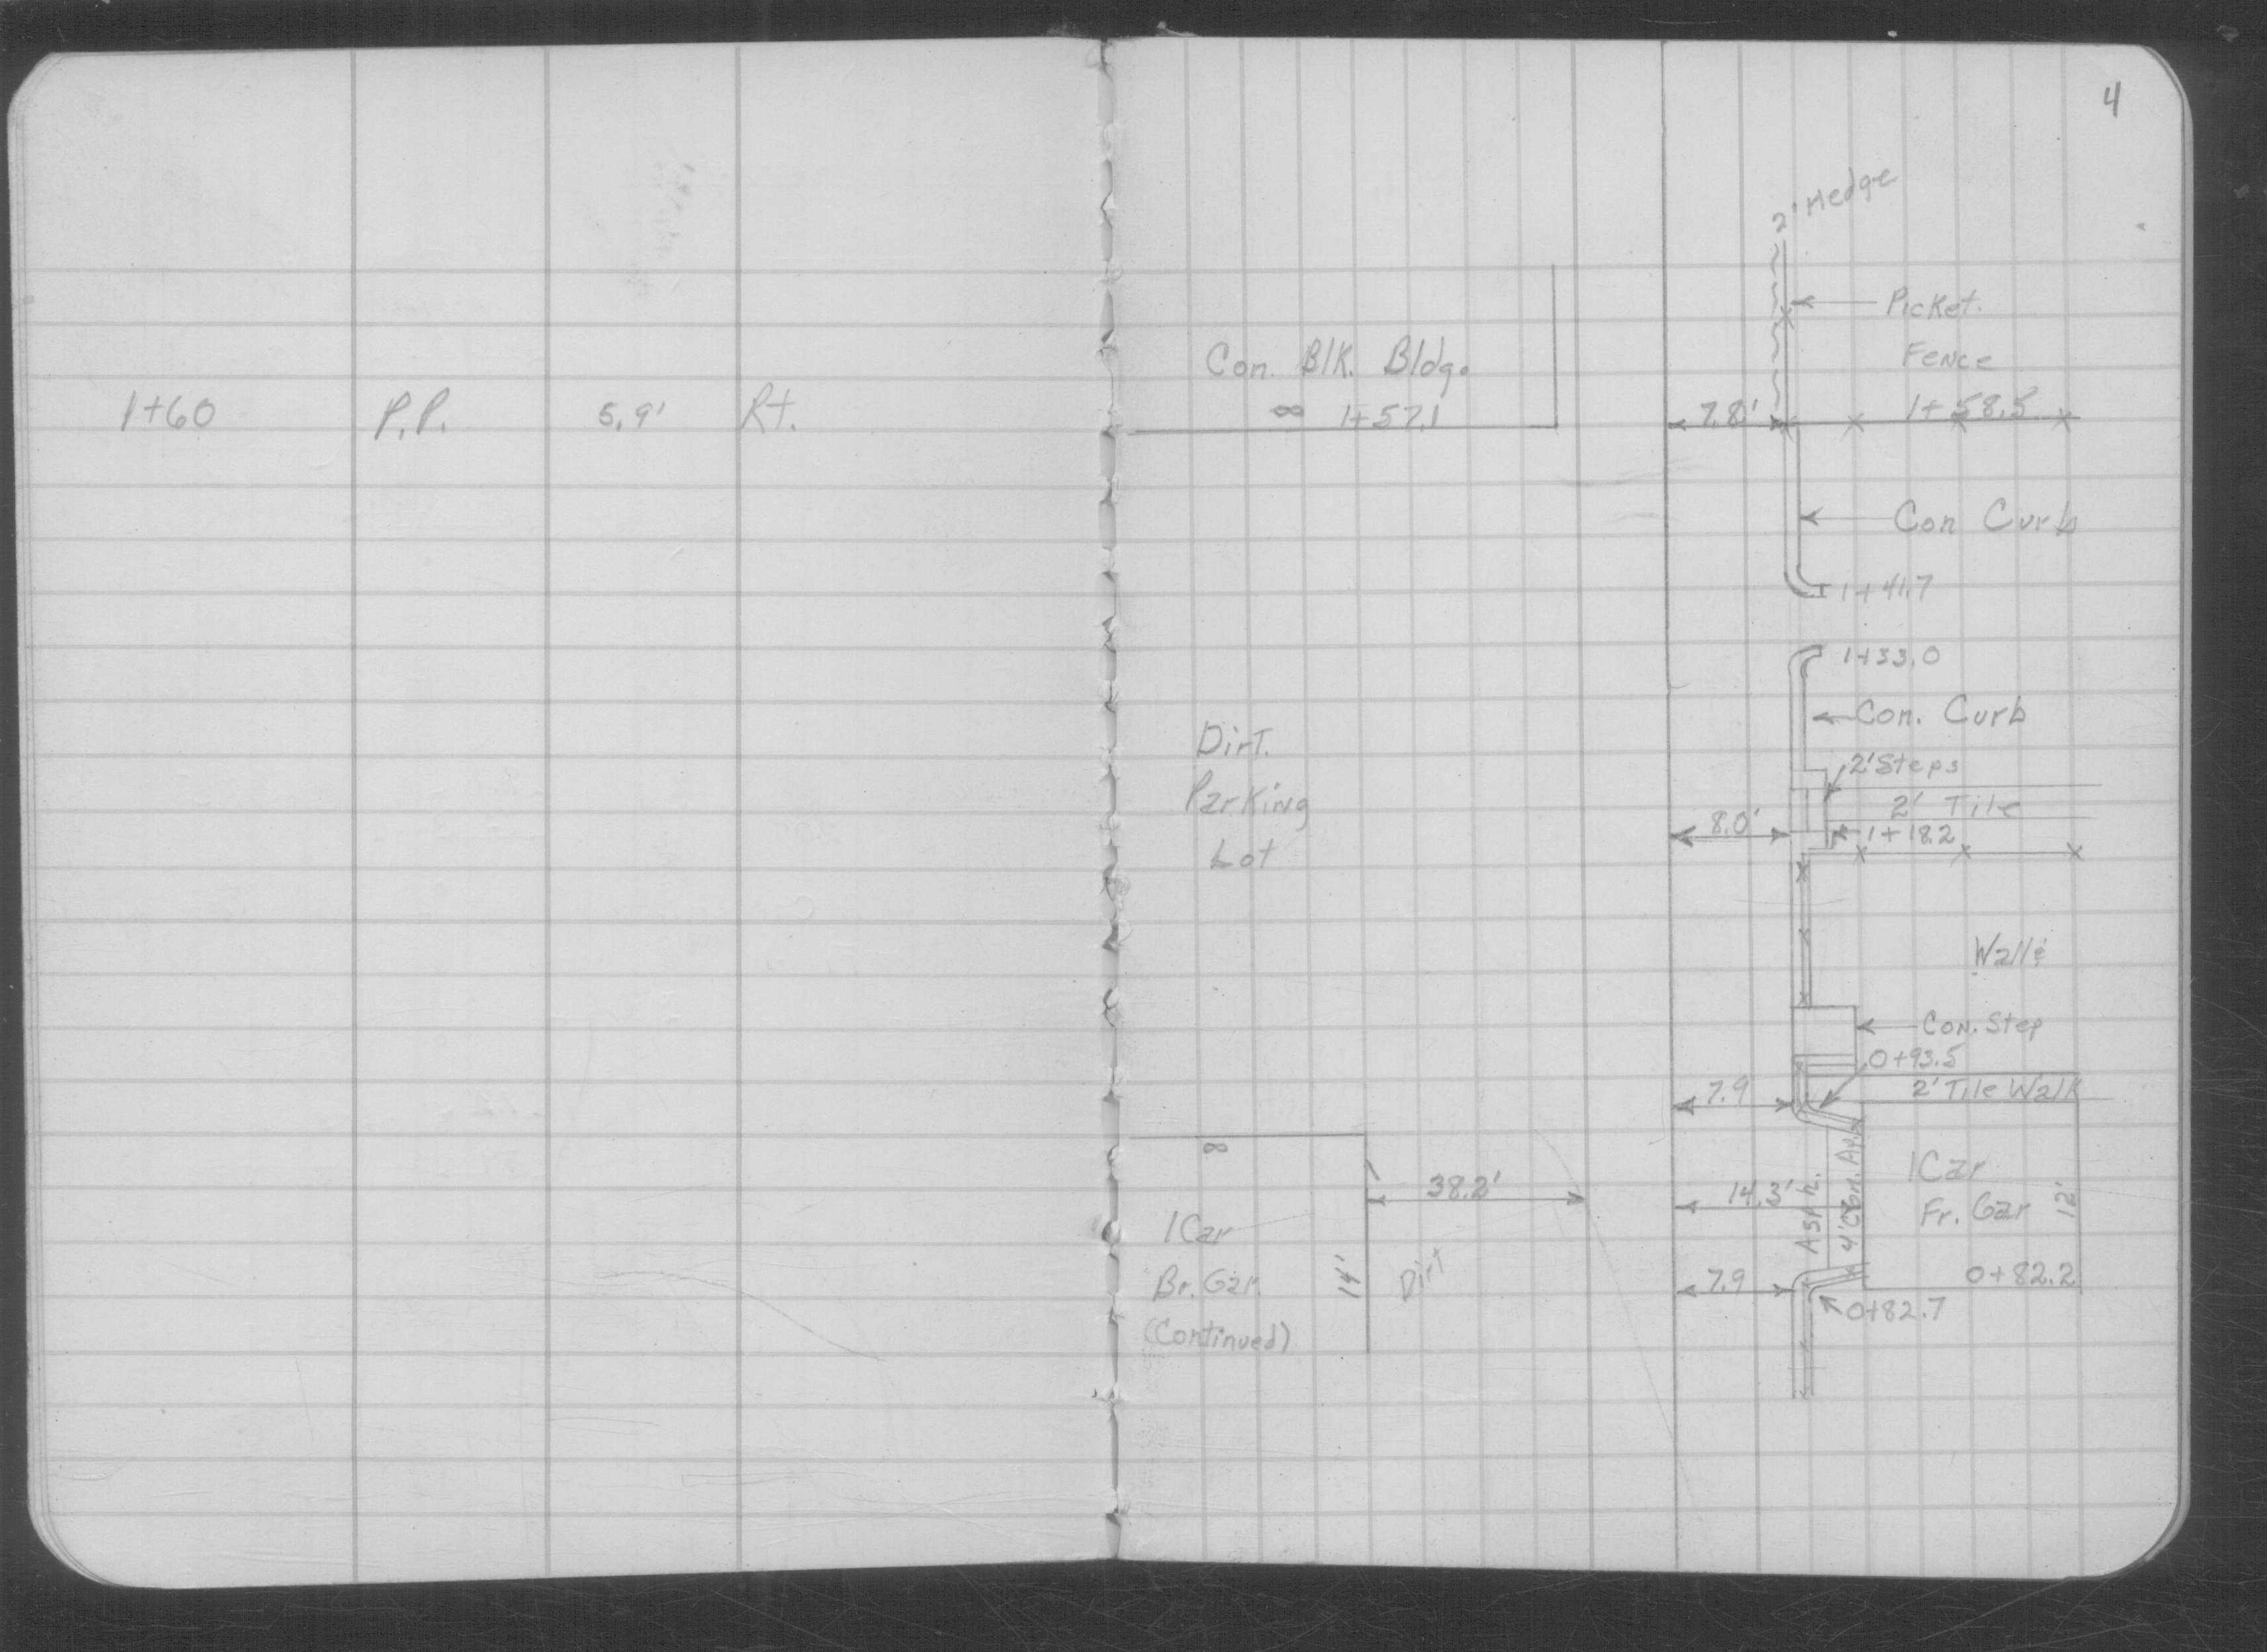 4
1+60 P.P. 5.9' Rt.
2' Hedge
Picket.
Fence
Con. Blk. Bldg.
∞ 1+57.1
7.8' 1+58.5
Con Curb
1+41.7
1+33.0
Con. Curb
Dirt.
Parking
Lot
2' Steps
2' Tile
8.0' 1+18.2
Con. Step
0+93.5
7.9 2' Tile Walk
∞
38.2'
14.3'
Asph.
4' Con. Ap.
1 Car
Fr. Gar
12'
1 Car
Br. Gar.
(Continued)
14'
Dirt
7.9 0+82.2
0+82.7